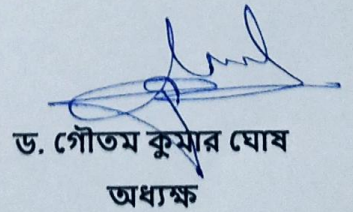 ড. গৌতম কুমার ঘোষ
অধ্যক্ষ